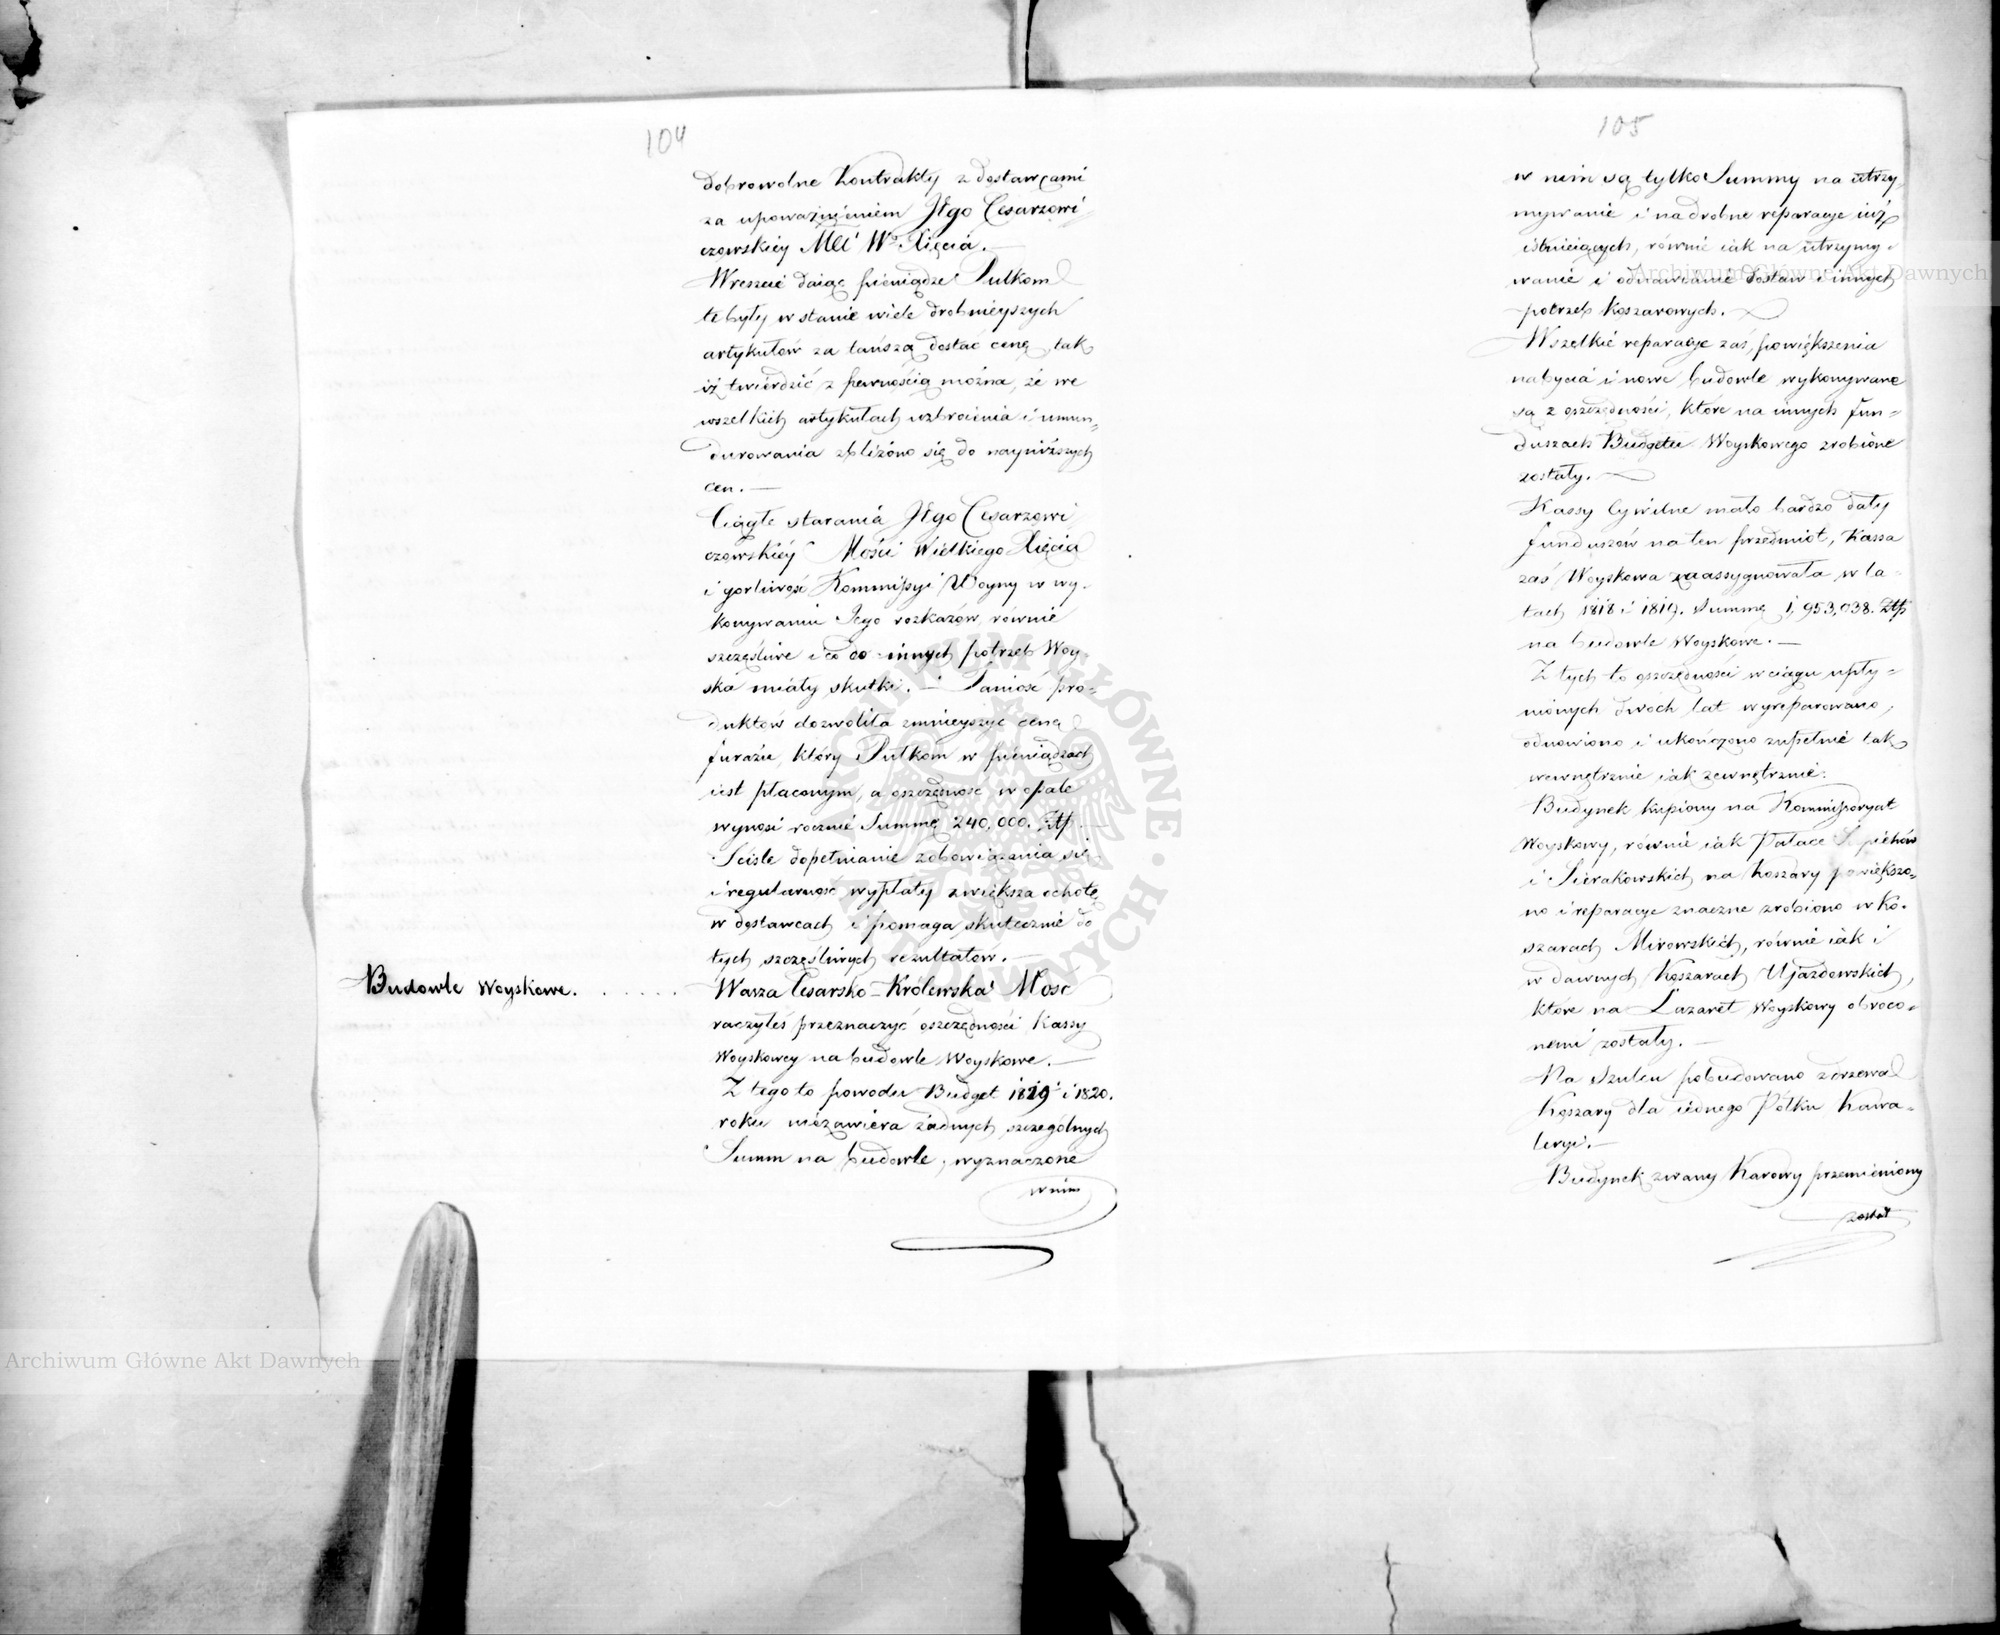 104
dobrowolne Kontrakty z dostawcami
za upoważnieniem Jego Cesarzowi
czowskiey Mci Wo Xięcia. —
Wreszcie daiąc pieniądze Pułkom
te były w stanie wiele drobnieyszych
artykułów za tańszą dostać cenę, tak
iż twierdzić z pewnością można, że we
wszelkich artykułach uzbroienia i umun„
durowania zbliżono się do nayniższych
cen. —
Ciągłe starania Jego Cesarzowi
czowskiey Mości Wielkiego Xięcia
i gorliwość Kommissyi Woyny w wy„
konywaniu Jego rozkazów, równie
szczęśliwe i co do innych potrzeb Woy„
ska miały skutki. — Taniość pro„
duktów dozwoliła zmnieyszyć cenę
furażu, który Pułkom w pieniądzach
iest płaconym, a oszczędność w opale
wynosi rocznie Summę 240,000. Złp. —
Sciśle dopełnianie zobowiązania się
i regularność wypłaty zwiększa ochotę
w dostawcach i pomaga skutecznie do
tych szczęśliwych rezultatów. —
Budowle Woyskowe. . . . . . Wasza Cesarsko-Królewska Mość
raczyłeś przeznaczyć oszczędności Kassy
Woyskowey na budowle Woyskowe. —
Z tego to powodu Budget 1819 i 1820.
roku niezawiera żadnych szczególnych
Summ na budowle, wyznaczone
w nim
105
w nim są tylko Summy na utrzy„
mywanie i na drobne reparacye iuż
istnieiących, równie iak na utrzymy„
wanie i odnawianie dostaw i innych
potrzeb Koszarowych.
Wszelkie reparacye zaś, powiększenia
nabycia i nowe budowle wykonywane
są z oszczędności, które na innych fun„
duszach Budgetu Woyskowego zrobione
zostały.
Kassy Cywilne mało bardzo dały
funduszów na ten przedmiot, Kassa
zaś Woyskowa zaassygnowała w la„
tach 1818 i 1819. Summę 1,953,038. Złp
na budowle Woyskowe. —
Z tych to oszczędności w ciągu upły„
nionych dwóch lat wyreparowano,
odnowiono i ukończono zupełnie tak
wewnętrznie iak zewnętrznie.
Budynek kupiony na Kommissoryat
Woyskowy, równie iak Pałace Sapiehów
i Sierakowskich na koszary powiększo„
no i reparacye znaczne zrobiono w Ko„
szarach Mirowskich, równie iak i
w dawnych Koszarach Ujazdowskich,
które na Lazaret Woyskowy obróco„
nemi zostały. —
Na Szulcu pobudowano z drzewa
Koszary dla iednego Pólku Kawa„
leryi. —
Budynek zwany Karowy przemieniony
został
Archiwum Główne Akt Dawnych
Archiwum Główne Akt Dawnych
ARCHIWUM GŁÓWNE AKT DAWNYCH